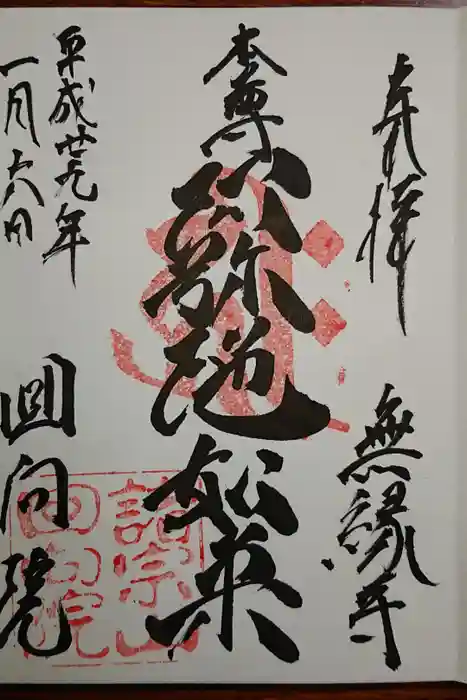 奉拝
無縁寺
本尊
阿弥陀如来
平成廿九年
一月十八日
回向院
諸宗山
回向院